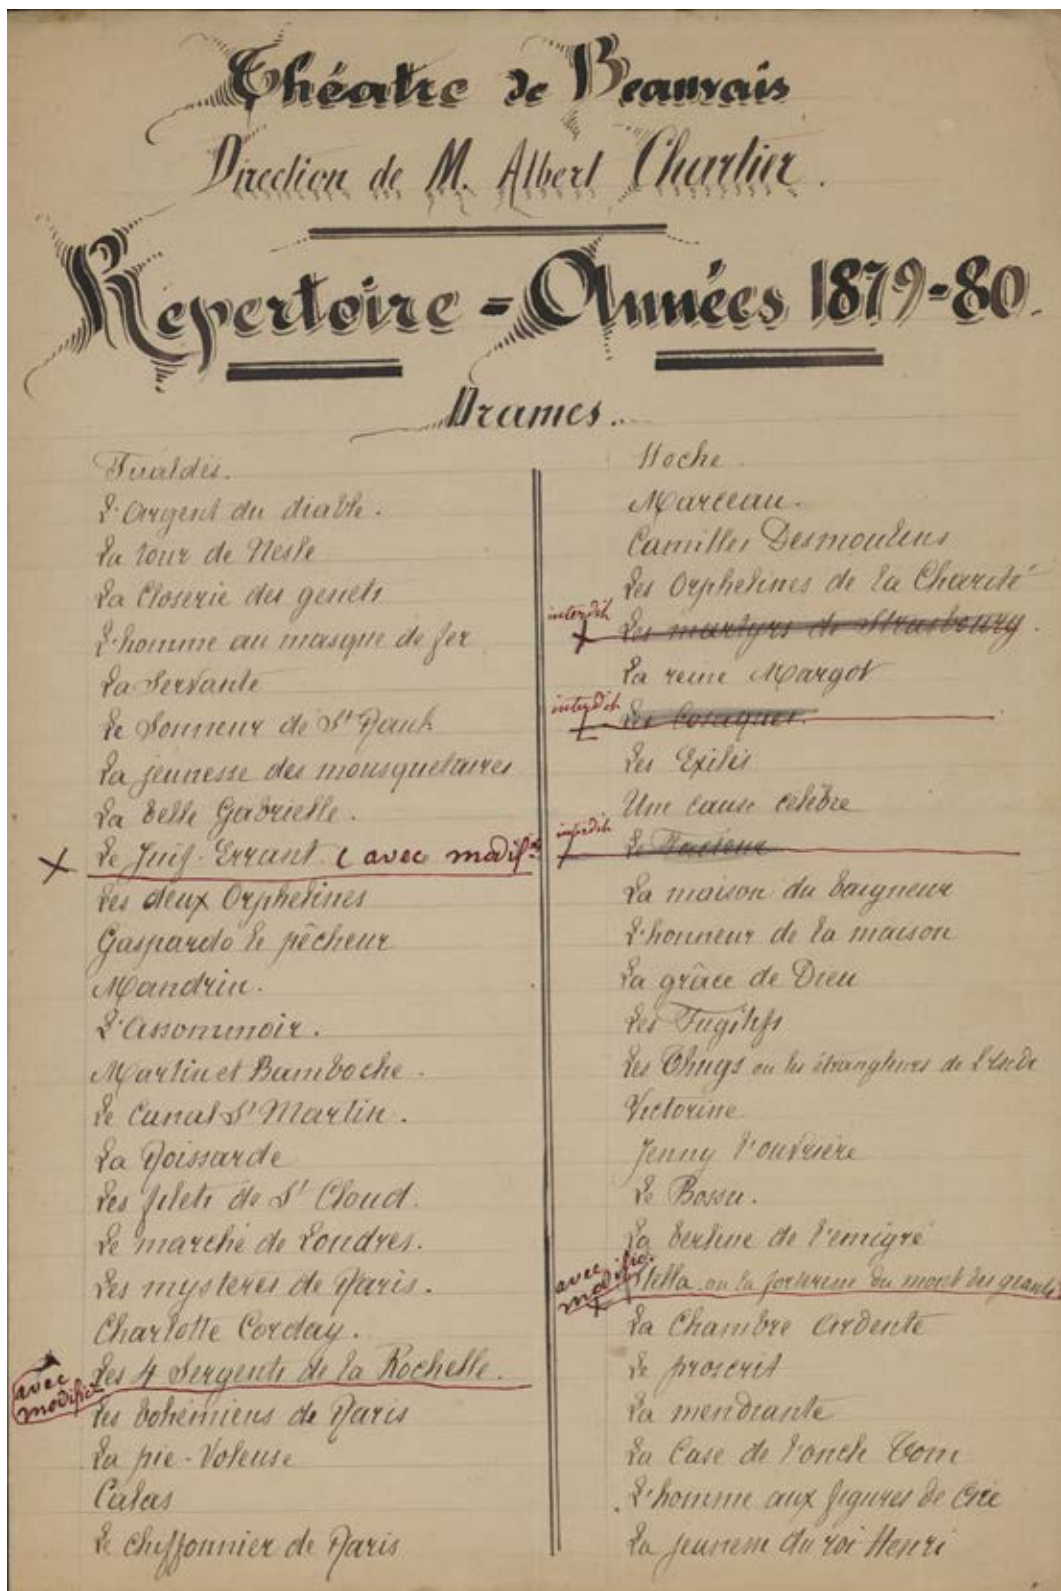 Théatre de Beauvais
Direction de M. Albert Chartier.
Répertoire = Années 1879-80.
Drames.
Fualdès.
L'Argent du diable.
La tour de Nesle
La Closerie des genets
L'homme au masque de fer
La Servante
Le Sonneur de St Paul
La jeunesse des mousquetaires
La belle Gabrielle.
Le Juif-Errant (avec modif.
Les deux Orphelines
Gaspardo le pêcheur
Mandrin.
L'Assommoir.
Martin et Bamboche.
Le Canal St Martin.
La Poissarde
Les filets de St Cloud.
Le marché de Londres.
Les mystères de Paris.
Charlotte Corday.
Les 4 Sergents de la Rochelle.
avec
modific
Les bohémiens de Paris
La pie-Voleuse
Calas
Le chiffonnier de Paris
Hoche
Marceau.
Camilles Desmoulens
Les Orphelines de la Charité
interdit
Les martyrs de Strasbourg.
La reine Margot
interdit
Les Cosaques.
Les Exilés
Une cause célèbre
interdit
Le
La maison du baigneur
L'honneur de la maison
La grâce de Dieu
Les Fugitifs
Les Thugs ou les étrangleurs de l'Inde
Victorine
Jenny l'ouvrière
Le Bossu.
La berline de l'émigré
avec
modific.
Stella ou la forteresse du mont des géants
La Chambre Ardente
Le proscrit
La mendiante
La Case de l'oncle Tom
L'homme aux figures de Cire
La jeunesse du roi Henri